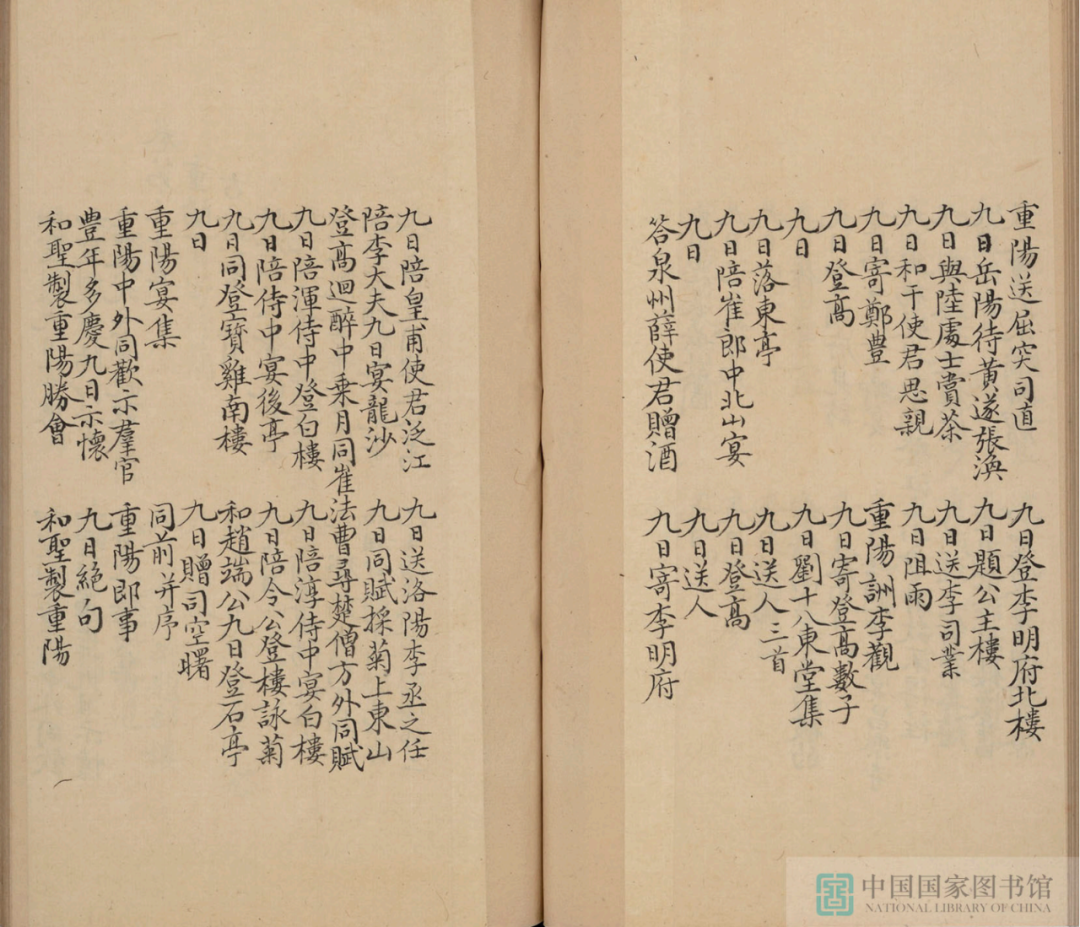 重陽送屈突司直　九日登李明府北樓
九日岳陽待黃遂張渙　九日題公主樓
九日與陸處士賞茶　九日送李司業
九日和于使君思親　九日阻雨
九日寄鄭豊　重陽詶李觀
九日登高　九日寄登高數子
九日　九日劉十八東堂集
九日落東亭　九日送人三首
九日陪崔郎中北山宴　九日登高
九日　九日送人
答泉州薛使君贈酒　九日寄李明府
九日陪皇甫使君泛江　九日送洛陽李丞之任
陪李大夫九日宴龍沙　九日同賦採菊上東山
登高迴醉中乗月同崔法曹尋楚僧方外同賦
九日陪渾侍中登白樓　九日陪淳侍中宴白樓
九日陪侍中宴後亭　九日陪令公登樓詠菊
九日同登寶雞南樓　和趙端公九日登石亭
九日　九日贈司空曙
重陽宴集　同前并序
重陽中外同歡示羣官　重陽即事
豊年多慶九日示懷　九日絕句
和聖製重陽勝會　和聖製重陽
中国国家图书馆
NATIONAL LIBRARY OF CHINA